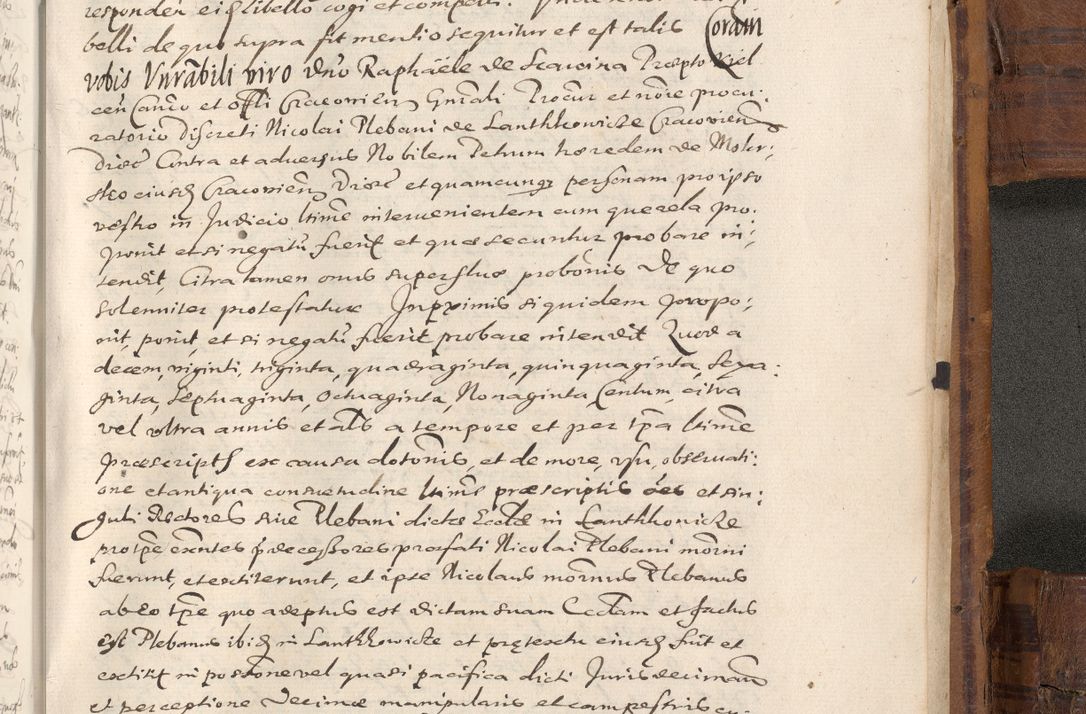 belli de quo supra fit mentio sequitur et est talis Coram
vobis Vnrabili viro dno Raphaele de Scavina Præpto Kiel
cen Canco et Offli Cracovien Gnrali Procur et noie procu:
ratorio Discreti Nicolai Plebani de Lanthkowicze Cracovien
Dioec Contra et adversus Nobilem Petrum hæredem de Mokr:
sko eiusq Cracovien Dioec et quamcunq personam pro ipso
vestro in Judicio ltime intervenientem cum querela pro:
ponit et si negatu fuerit et quæ secuntur probare in:
tendit, Citra tamen onus superfluæ probonis De quo
solenniter protestatur Inprimis siquidem propo:
nit, ponit et si negatu fuerit probare intendit Quod a
decem, viginti, triginta, quadraginta, quinquaginta, sexa:
ginta, septuaginta, octuaginta, Nonaginta, Centum, citra
vel vltra annis et als a tempore et per tpa ltime
præscripta ex causa dotonis, et de more, vsu, observati:
one et antiqua consuetudine ltime præscriptis oes et sin:
guli Rectores sive Plebani dictæ Eccliæ in Lanthkowicze
pro tpe exntes prædecessores præfati Nicolai Plebani moderni
fuerunt, et extiterunt, et ipse Nicolaus mornus Plebanus
ab eo tpe quo adeptus est dictam suam Eccliam et factus
est Plebanus ibidq in Lanthkowicze et prętextu eiusq fuit et
extitit in possone vel quasi pacifica dicti Juris decimandi
et perceptione Decimæ manipularis et campestris